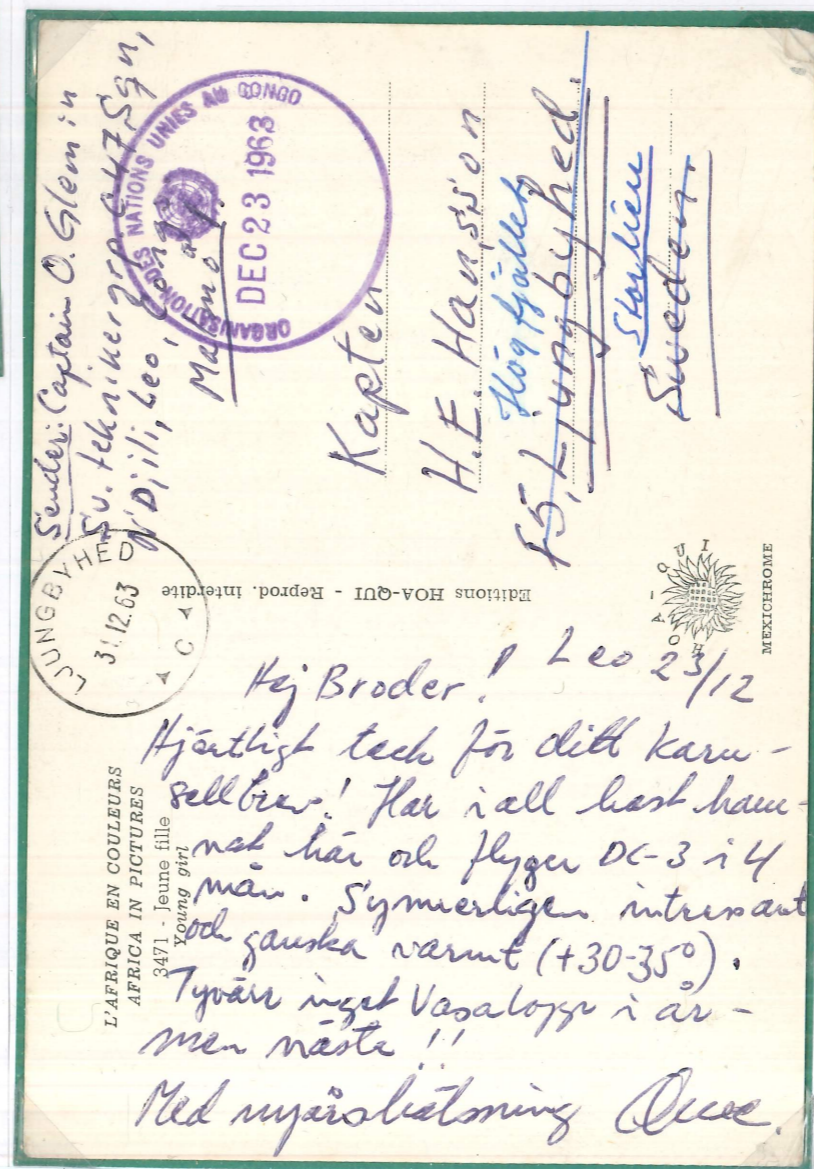 Sender: Captain O. Glemin
Sv. teknikergrp c/o 47 Sqn,
N'Djili, Leo, Congo
ORGANISATION DES NATIONS UNIES AU CONGO
DEC 23 1963
Kapten
H.E. Hansson
Högfjället
F5, Ljungbyhed.
Storlien
Sweden.
LJUNGBYHED
31.12.63
C
Editions HOA-QUI - Reprod. interdite
HOA-QUI
MEXICHROME
L'AFRIQUE EN COULEURS
AFRICA IN PICTURES
3471 - Jeune fille
Young girl
Leo 23/12
Hej Broder!
Hjärtligt tack för ditt karu-
sellbrev! Har i all hast ham-
nat här och flyger DC-3 i 4
mån. Synnerligen intressant
och ganska varmt (+30-35°).
Tyvärr inget Vasalopp i år -
men nästa!!
Med nyårshälsning